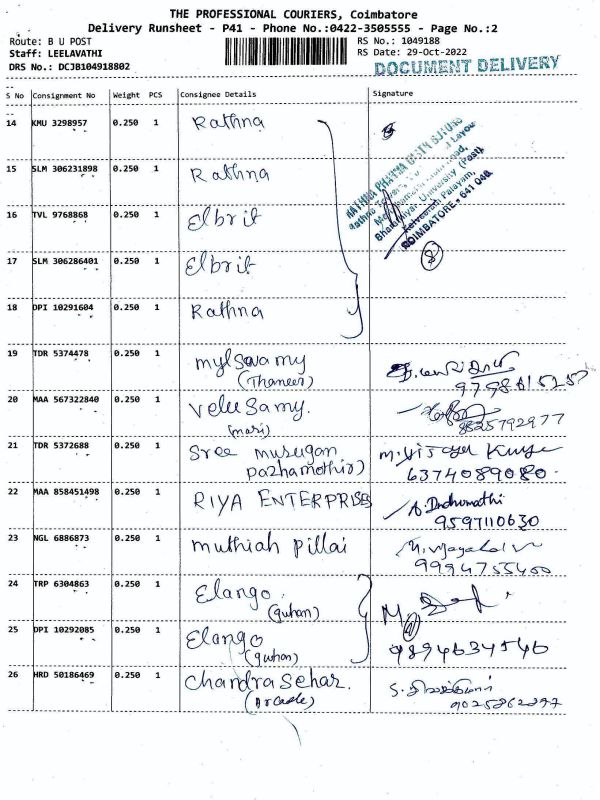 THE PROFESSIONAL COURIERS, Coimbatore
Delivery Runsheet - P41 - Phone No.:0422-3505555 - Page No.:2
Route: B U POST
RS No.: 1049188
Staff: LEELAVATHI
RS Date: 29-Oct-2022
DRS No.: DCJB104918802
DOCUMENT DELIVERY
S No Consignment No Weight PCS Consignee Details Signature
14 KMU 3298957 0.250 1 Rathna
15 SLM 306231898 0.250 1 Rathna
16 TVL 9768868 0.250 1 Elbrit
17 SLM 306286401 0.250 1 Elbrit
18 DPI 10291604 0.250 1 Rathna
University (Post),
COIMBATORE - 641 046
19 TDR 5374478 0.250 1 mylswamy
(Thaneer)
20 MAA 567322840 0.250 1 velusamy.
(mari) 9825792977
21 TDR 5372688 0.250 1 Sree murugan
pazhamothir) 6374089080
22 MAA 858451498 0.250 1 RIYA ENTERPRISES A. Indhumathi
9597110630
23 NGL 6886873 0.250 1 muthiah pillai
9994755400
24 TRP 6304863 0.250 1 Elango.
(guhan)
25 DPI 10292085 0.250 1 Elango 9894634546
(guhan)
26 HRD 50186469 0.250 1 Chandrasehar.
(Arcade) 9025862897